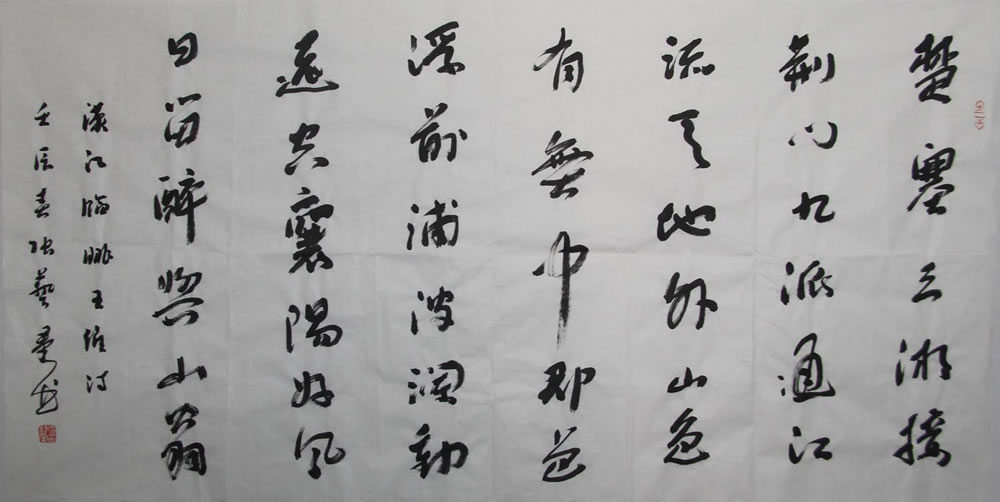 楚塞三湘接
荆门九派通江
流天地外山色
有無中郡邑
浮前浦波澜動
遠空襄陽好風
日留醉與山翁
漢江臨眺王維诗
壬辰春张藝书